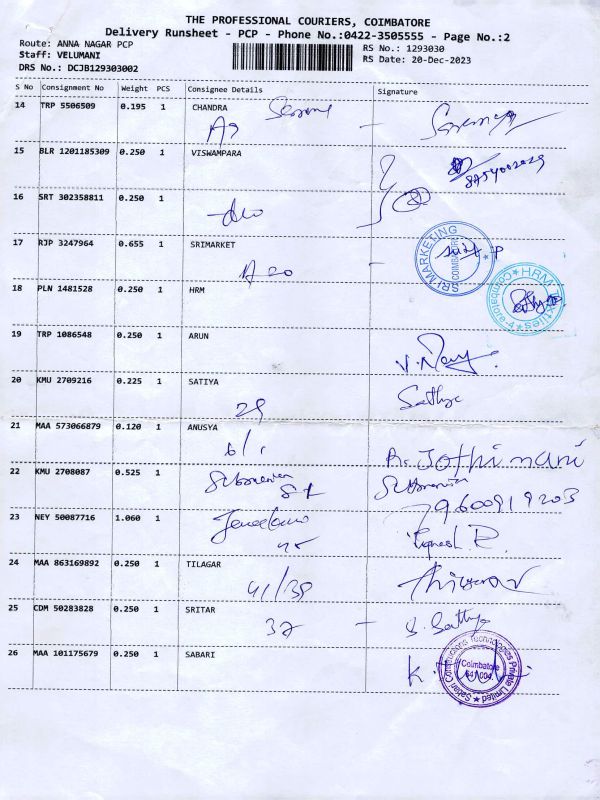 THE PROFESSIONAL COURIERS, COIMBATORE
Delivery Runsheet - PCP - Phone No.:0422-3505555 - Page No.:2
Route: ANNA NAGAR PCP
RS No.: 1293030
Staff: VELUMANI
RS Date: 20-Dec-2023
DRS No.: DCJB129303002
S No Consignment No Weight PCS Consignee Details Signature
14 TRP 5506509 0.195 1 CHANDRA
15 BLR 1201185309 0.250 1 VISWAMPARA
16 SRT 302358811 0.250 1
17 RJP 3247964 0.655 1 SRIMARKET
SRI MARKETING COIMBATORE
18 PLN 1481528 0.250 1 HRM
HRM Textiles
Coimbatore-4
19 TRP 1086548 0.250 1 ARUN
20 KMU 2709216 0.225 1 SATIYA
29 Sathya
21 MAA 573066879 0.120 1 ANUSYA
6/1 A. Jothimani
22 KMU 2708087 0.525 1
9600919203
23 NEY 50087716 1.060 1
24 MAA 863169892 0.250 1 TILAGAR
41/39
25 CDM 50283828 0.250 1 SRITAR
37 - S. Sathya
26 MAA 101175679 0.250 1 SABARI
K.
Technologies Private Limited
Coimbatore
641 004.